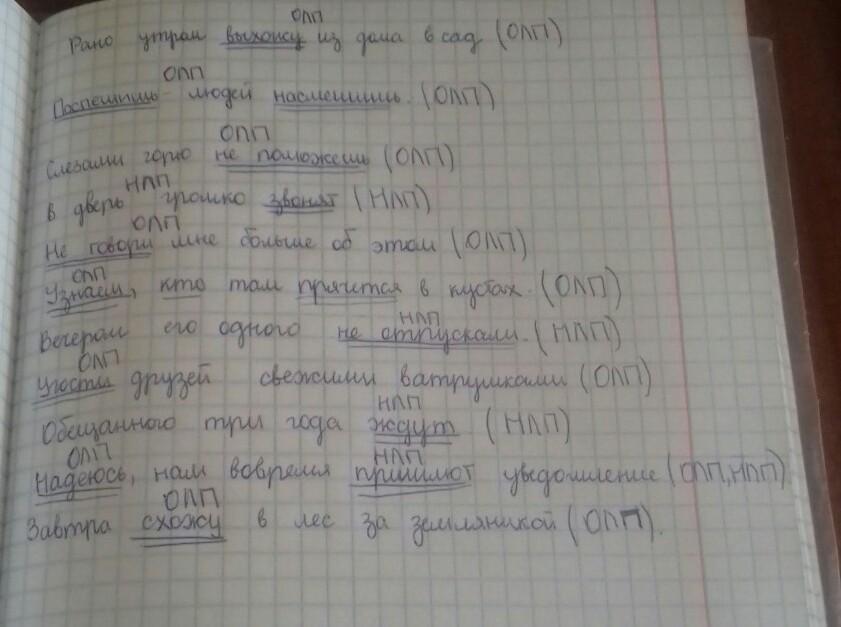 ОЛП
Рано утром выхожу из дома в сад (ОЛП)
ОЛП
Поспешишь - людей насмешишь. (ОЛП)
ОЛП
Слезами горю не поможешь (ОЛП)
НЛП
В дверь громко звонят (НЛП)
ОЛП
Не говори мне больше об этом (ОЛП)
ОЛП
Узнаем, кто там прячется в кустах. (ОЛП)
НЛП
Вечером его одного не отпускали. (НЛП)
ОЛП
Угости друзей свежими ватрушками (ОЛП)
НЛП
Обещанного три года ждут (НЛП)
ОЛП НЛП
Надеюсь, нам вовремя пришлют уведомление (ОЛП, НЛП)
ОЛП
Завтра схожу в лес за земляникой (ОЛП).